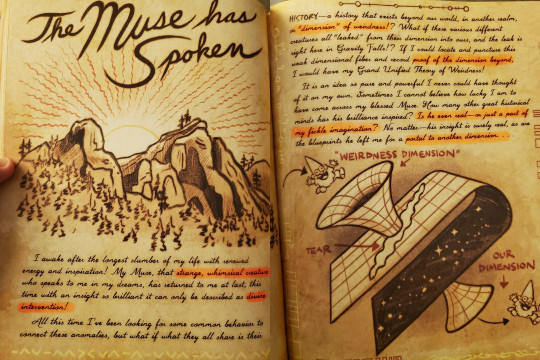 The Muse has
Spoken
I awake after the longest slumber of my life with renewed
energy and inspiration! My Muse, that strange, whimsical creature
who speaks to me in my dreams, has returned to me at last, this
time with an insight so brilliant it can only be described as divine
intervention!
All this time I've been looking for some common behavior to
connect these anomalies, but what if what they all share is their
HISTORY—a history that exists beyond our world, in another realm,
or "dimension" of weirdness!? What if these various different
creatures all "leaked" from their dimension into ours, and the leak is
right here in Gravity Falls!? If I could locate and puncture this
weak dimensional fibres and record proof of the dimension beyond,
I would have my Grand Unified Theory of Weirdness!
It is an idea so pure and powerful I never could have thought
of it on my own. Sometimes I cannot believe how lucky I am to
have come across my blessed Muse. How many other great historical
minds has his brilliance inspired? Is he even real—or just a part of
my fickle imagination? No matter—his insight is surely real, as are
the blueprints he left me for a portal to another dimension...
"WEIRDNESS DIMENSION"
TEAR
OUR
DIMENSION